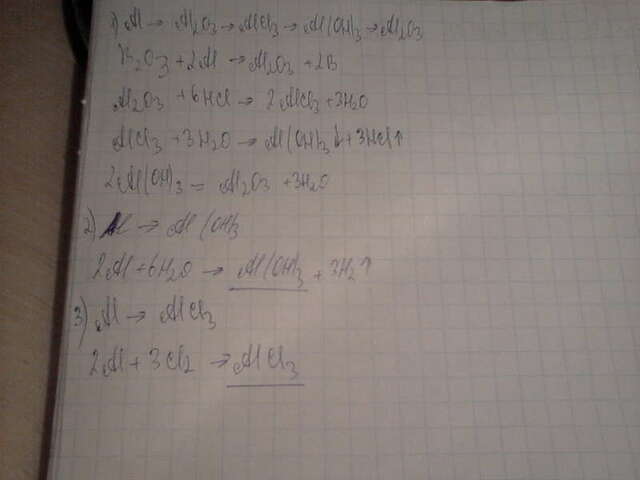 1) Al → Al₂O₃ → AlCl₃ → Al(OH)₃ → Al₂O₃
B₂O₃ + 2Al → Al₂O₃ + 2B
Al₂O₃ + 6HCl → 2AlCl₃ + 3H₂O
AlCl₃ + 3H₂O → Al(OH)₃↓ + 3HCl↑
2Al(OH)₃ = Al₂O₃ + 3H₂O
2) Al → Al(OH)₃
2Al + 6H₂O → Al(OH)₃ + 3H₂↑
3) Al → AlCl₃
2Al + 3Cl₂ → AlCl₃